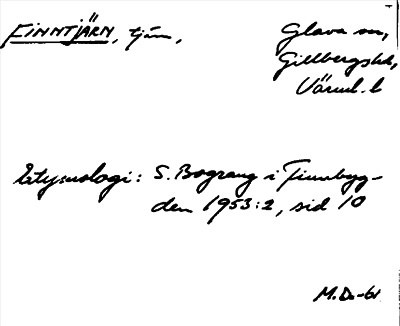 FINNTJÄRN, tjärn, Glava sn,
Gillbergs hd,
Värml. l.
Etymologi: S. Bograng i Finnbyg-
den 1953:2, sid 10
M.D. -61